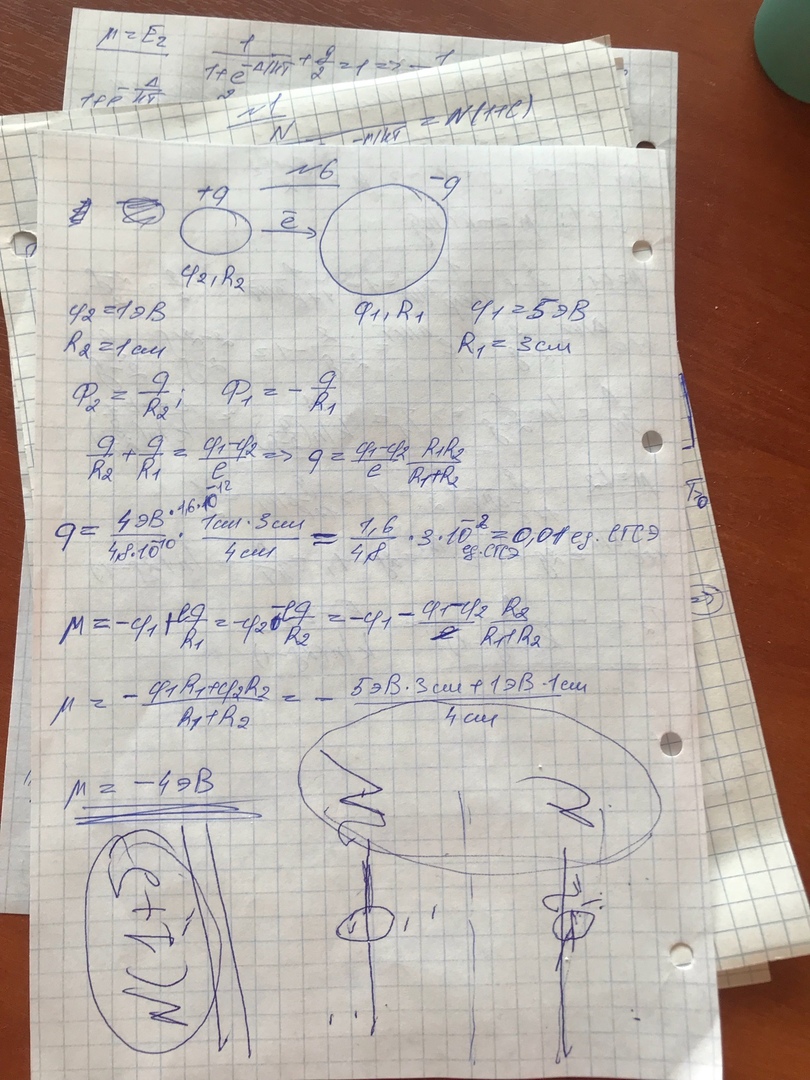 μ = E₂
1/(1+e^(-Δ/кТ)) + q/2 = 1 =>
1+e^(-Δ/кТ)
2
№1
N
-μ/кТ = N(1+C)
№6
+q
-q
ē
φ₂, R₂
φ₁, R₁
φ₂ = 1эВ
φ₁ = 5эВ
R₂ = 1см
R₁ = 3см
Φ₂ = q/R₂; Φ₁ = - q/R₁
q/R₂ + q/R₁ = (φ₁-φ₂)/e => q = (φ₁-φ₂)/e R₁R₂/(R₁+R₂)
q = 4эВ·1,6·10⁻¹²/4,8·10⁻¹⁰ · 1см·3см/4см = 1,6/4,8 · 3·10⁻² ед.СГСЭ = 0,01 ед. СГСЭ
μ = -φ₁ + eq/R₁ = -φ₂ - eq/R₂ = -φ₁ - (φ₁-φ₂) R₂/(R₁+R₂)
μ = - (φ₁R₁+φ₂R₂)/(R₁+R₂) = - (5эВ·3см+1эВ·1см)/4см
μ = -4эВ